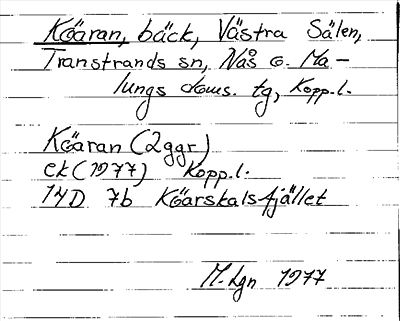 Köaran, bäck, Västra Sälen,
Transtrands sn, Nås o. Ma-
lungs doms. tg, Kopp.l.
Köaran (2ggr)
ek (1977) Kopp.l.
14D 7b Köarskalsfjället
M-Lgn 1977